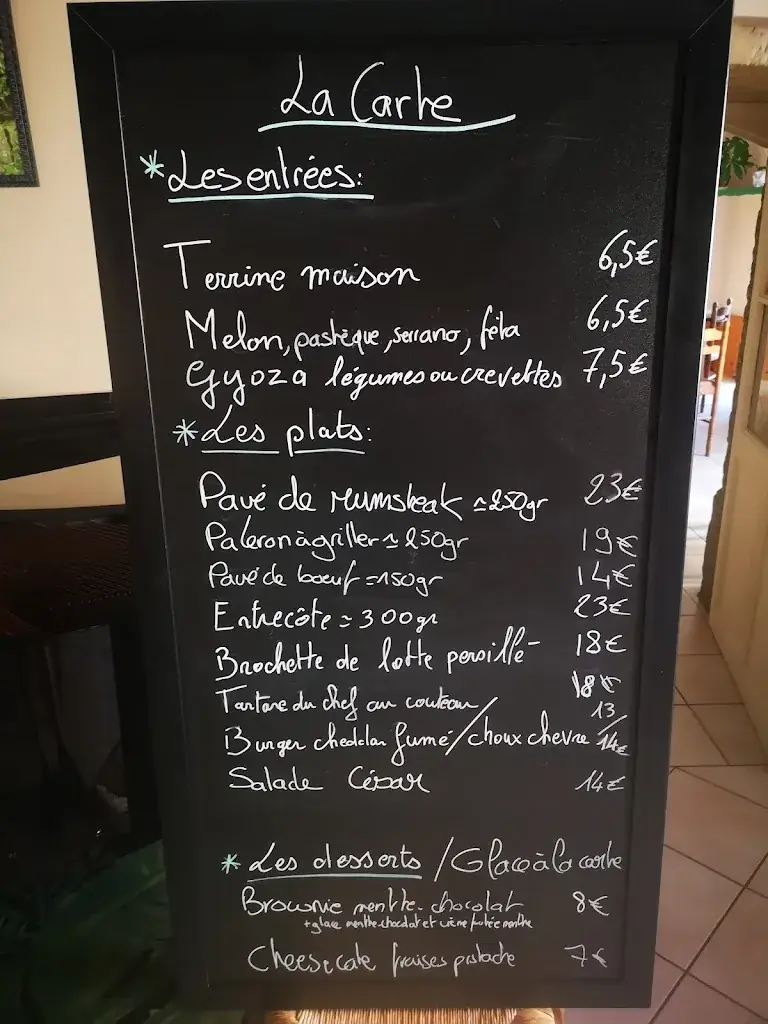 La Carte
* Les entrées:
Terrine maison 6,5€
Melon, pastèque, serrano, fêta 6,5€
Gyoza légumes ou crevettes 7,5€
* Les plats:
Pavé de rumsteak ≃ 250gr 23€
Paleron à griller ≃ 250gr 19€
Pavé de boeuf = 150gr 14€
Entrecôte = 300gr 23€
Brochette de lotte persillé 18€
Tartare du chef au couteau 18€
Burger cheddar fumé/choux chevre 13/14€
Salade César 14€
* Les desserts /Glace à la carte
Brownie menthe-chocolat 8€
+glace menthe-chocolat et crème menthe
Cheesecake fraises pistache 7€